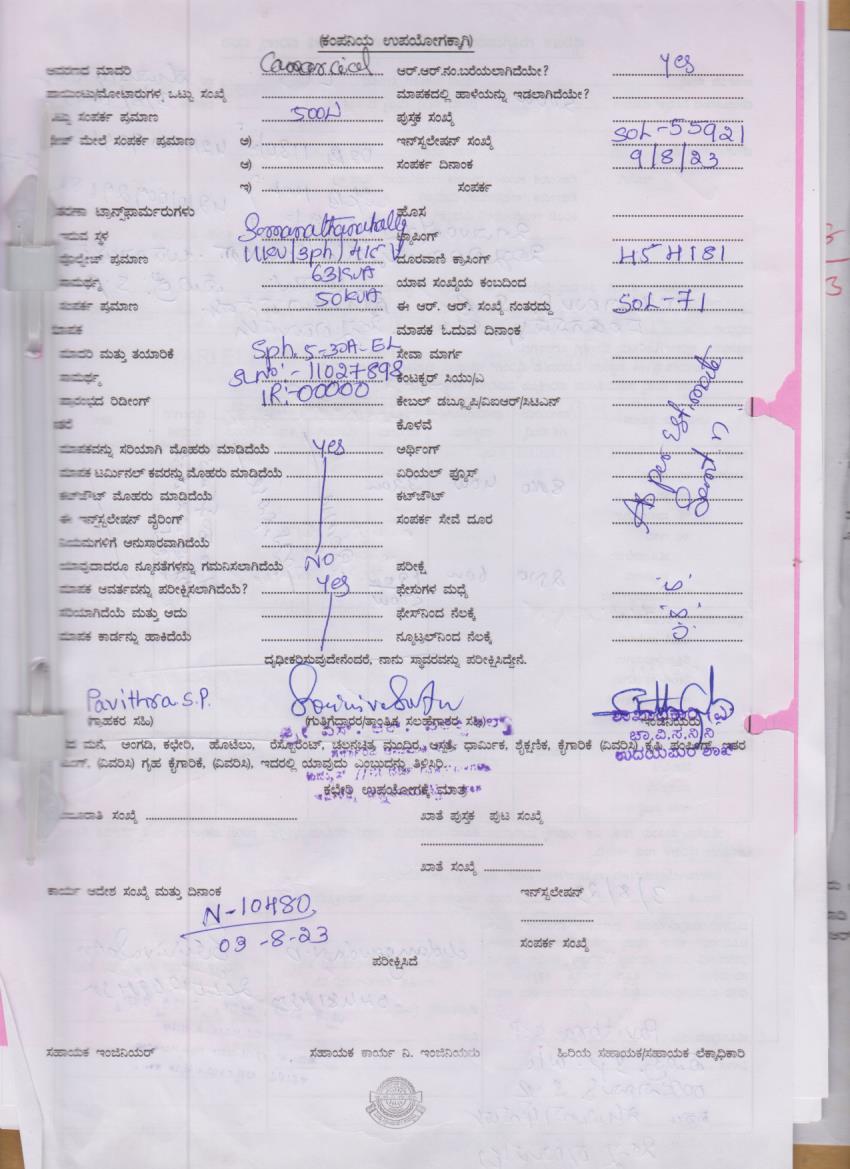 (ಕಂಪನಿಯ ಉಪಯೋಗಕ್ಕಾಗಿ)
ಆವರಣದ ಮಾದರಿ Commercical ಆರ್.ಆರ್.ನಂ.ಬರೆಯಲಾಗಿದೆಯೇ? yes
ಪಾಯಿಂಟು/ಮೋಟಾರುಗಳ ಒಟ್ಟು ಸಂಖ್ಯೆ ಮಾಪಕದಲ್ಲಿ ಹಾಳೆಯನ್ನು ಇಡಲಾಗಿದೆಯೇ?
ಒಟ್ಟು ಸಂಪರ್ಕ ಪ್ರಮಾಣ 500W ಪುಸ್ತಕ ಸಂಖ್ಯೆ
ಮೇಲೆ ಸಂಪರ್ಕ ಪ್ರಮಾಣ ಅ) ಇನ್‌ಸ್ಟಲೇಷನ್ ಸಂಖ್ಯೆ SOL-55921
ಆ) ಸಂಪರ್ಕ ದಿನಾಂಕ 9/8/23
ಇ) ಸಂಪರ್ಕ
ಟ್ರಾನ್ಸ್‌ಫಾರ್ಮರುಗಳು ಹೊಸ
ಇರುವ ಸ್ಥಳ Somanathanahally ಟ್ಯಾಪಿಂಗ್
ವೋಲ್ಟೇಜ್ ಪ್ರಮಾಣ 11KV/3ph/ ದೂರವಾಣಿ ಕ್ರಾಸಿಂಗ್ 454181
ಸಾಮರ್ಥ್ಯ 63KVA ಯಾವ ಸಂಖ್ಯೆಯ ಕಂಬದಿಂದ
ಸಂಪರ್ಕ ಪ್ರಮಾಣ 50KVA ಈ ಆರ್. ಆರ್. ಸಂಖ್ಯೆ ನಂತರದ್ದು SOL-71
ಮಾಪಕ ಮಾಪಕ ಓದುವ ದಿನಾಂಕ
ಮಾದರಿ ಮತ್ತು ತಯಾರಿಕೆ Sph, 5-30A-EL ಸೇವಾ ಮಾರ್ಗ
ಸಾಮರ್ಥ್ಯ SLno:-11027898 ಕಂಟಕ್ಟರ್ ಸಿಯು/ಎ
ಪ್ರಾರಂಭದ ರಿಡೀಂಗ್ IR:-00000 ಕೇಬಲ್ ಡಬ್ಲ್ಯೂಪಿ/ವಿಐಆರ್/ಸಿಟಿಎಸ್
ಇತರೆ ಕೊಳವೆ
ಮಾಪಕವನ್ನು ಸರಿಯಾಗಿ ಮೊಹರು ಮಾಡಿದೆಯೆ yes ಅರ್ಥಿಂಗ್
ಮಾಪಕ ಟರ್ಮಿನಲ್ ಕವರನ್ನು ಮೊಹರು ಮಾಡಿದೆಯೆ ಏರಿಯಲ್ ಫ್ಯೂಸ್
ಕಟ್‌ಔಟ್ ಮೊಹರು ಮಾಡಿದೆಯೆ ಕಟ್‌ಔಟ್
ಈ ಇನ್‌ಸ್ಟಲೇಷನ್ ವೈರಿಂಗ್ ಸಂಪರ್ಕ ಸೇವೆ ದೂರ
As per Estimate
ನಿಯಮಗಳಿಗೆ ಅನುಸಾರವಾಗಿದೆಯೆ
ಯಾವುದಾದರೂ ನ್ಯೂನತೆಗಳನ್ನು ಗಮನಿಸಲಾಗಿದೆಯೆ NO ಪರೀಕ್ಷೆ
ಮಾಪಕ ಆವರ್ತವನ್ನು ಪರೀಕ್ಷಿಸಲಾಗಿದೆಯೆ? yes ಫೇಸುಗಳ ಮಧ್ಯೆ
ಸರಿಯಾಗಿದೆಯೆ ಮತ್ತು ಅದು ಫೇಸ್‌ನಿಂದ ನೆಲಕ್ಕೆ
ಮಾಪಕ ಕಾರ್ಡನ್ನು ಹಾಕಿದೆಯೆ ನ್ಯೂಟ್ರಲ್‌ನಿಂದ ನೆಲಕ್ಕೆ
ದೃಢೀಕರಿಸುವುದೇನೆಂದರೆ, ನಾನು ಸ್ಥಾವರವನ್ನು ಪರೀಕ್ಷಿಸಿದ್ದೇನೆ.
Pavithra S.P.
ಗ್ರಾಹಕರ ಸಹಿ) (ಗುತ್ತಿಗೆದಾರರ/ತಾಂತ್ರಿಕ ಸಲಹೆಗಾರರ ಸಹಿ) ಇಂಜಿನಿಯರು
ಚಾ.ವಿ.ಸ.ನಿ.ನಿ
ಉದಯಪುರ ಶಾಖೆ
ಮನೆ, ಅಂಗಡಿ, ಕಛೇರಿ, ಹೊಟೆಲು, ರೆಸ್ಟೋರೆಂಟ್, ಚಲನಚಿತ್ರ ಮಂದಿರ, ಆಸ್ಪತ್ರೆ, ಧಾರ್ಮಿಕ, ಶೈಕ್ಷಣಿಕ, ಕೈಗಾರಿಕೆ (ವಿವರಿಸಿ) ಕೃಷಿ ಪಂಪಿಂಗ್, ಇತರ
(ವಿವರಿಸಿ) ಗೃಹ ಕೈಗಾರಿಕೆ, (ವಿವರಿಸಿ), ಇದರಲ್ಲಿ ಯಾವುದು ಎಂಬುದನ್ನು ತಿಳಿಸಿರಿ.
ಕಛೇರಿ ಉಪಯೋಗಕ್ಕೆ ಮಾತ್ರ
ಸಂಖ್ಯೆ ಖಾತೆ ಪುಸ್ತಕ ಪುಟ ಸಂಖ್ಯೆ
ಖಾತೆ ಸಂಖ್ಯೆ
ಕಾರ್ಯ ಆದೇಶ ಸಂಖ್ಯೆ ಮತ್ತು ದಿನಾಂಕ ಇನ್‌ಸ್ಟಲೇಷನ್
N-10480,
09-8-23
ಸಂಪರ್ಕ ಸಂಖ್ಯೆ
ಪರೀಕ್ಷಿಸಿದೆ
ಸಹಾಯಕ ಇಂಜಿನಿಯರ್ ಸಹಾಯಕ ಕಾರ್ಯ ನಿ. ಇಂಜಿನಿಯರು ಹಿರಿಯ ಸಹಾಯಕ/ಸಹಾಯಕ ಲೆಕ್ಕಾಧಿಕಾರಿ